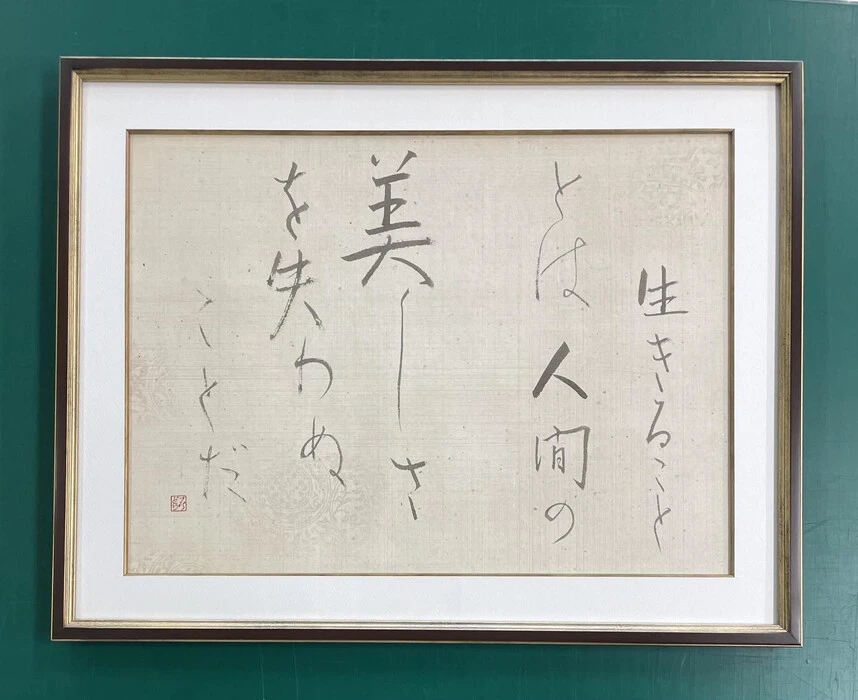 生きること
とは人間の
美しさ
を失わぬ
ことだ